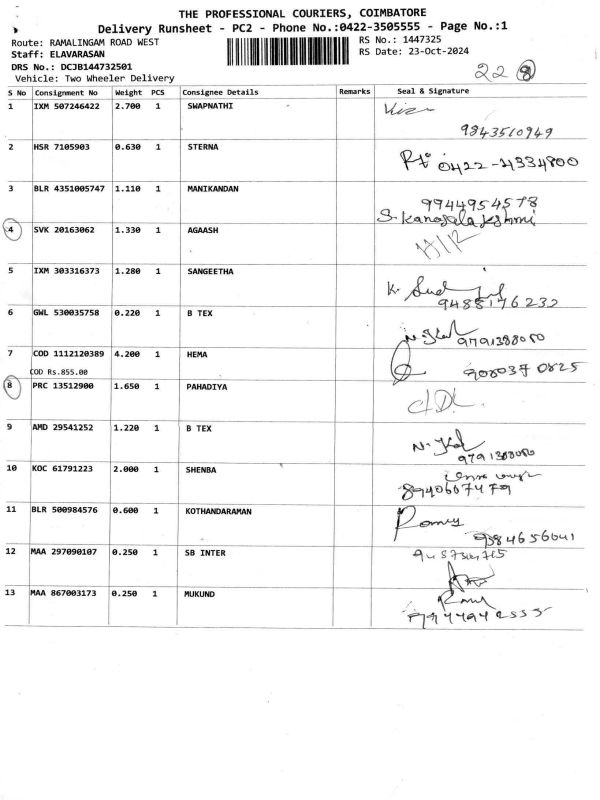 THE PROFESSIONAL COURIERS, COIMBATORE
Delivery Runsheet - PC2 - Phone No.:0422-3505555 - Page No.:1
Route: RAMALINGAM ROAD WEST RS No.: 1447325
Staff: ELAVARASAN RS Date: 23-Oct-2024
DRS No.: DCJB144732501
Vehicle: Two Wheeler Delivery 22 8
S No Consignment No Weight PCS Consignee Details Remarks Seal & Signature
1 IXM 507246422 2.700 1 SWAPNATHI
9843510949
2 HSR 7105903 0.630 1 STERNA
0422-4334800
3 BLR 4351005747 1.110 1 MANIKANDAN
9944954578
4 SVK 20163062 1.330 1 AGAASH
5 IXM 303316373 1.280 1 SANGEETHA
9488176232
6 GWL 530035758 0.220 1 B TEX
9791388080
7 COD 1112120389 4.200 1 HEMA
COD Rs.855.00 9080370825
8 PRC 13512900 1.650 1 PAHADIYA
9 AMD 29541252 1.220 1 B TEX
10 KOC 61791223 2.000 1 SHENBA
8940607479
11 BLR 500984576 0.600 1 KOTHANDARAMAN
12 MAA 297090107 0.250 1 SB INTER
13 MAA 867003173 0.250 1 MUKUND